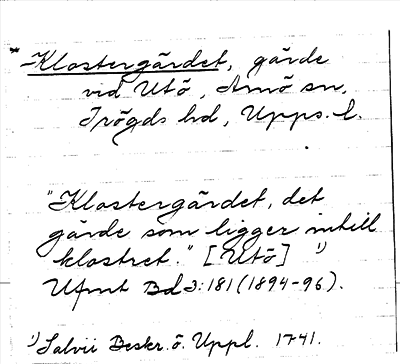 *-Klostergärdet, gärde
vid Utö, Arnö sn,
Trögds hd, Upps. l.
"Klostergärdet, det
gärde som ligger intill
klostret." [Utö] 1)
Ufmt Bd 3:181 (1894-96).
1) Salvii Beskr. ö. Uppl. 1741.